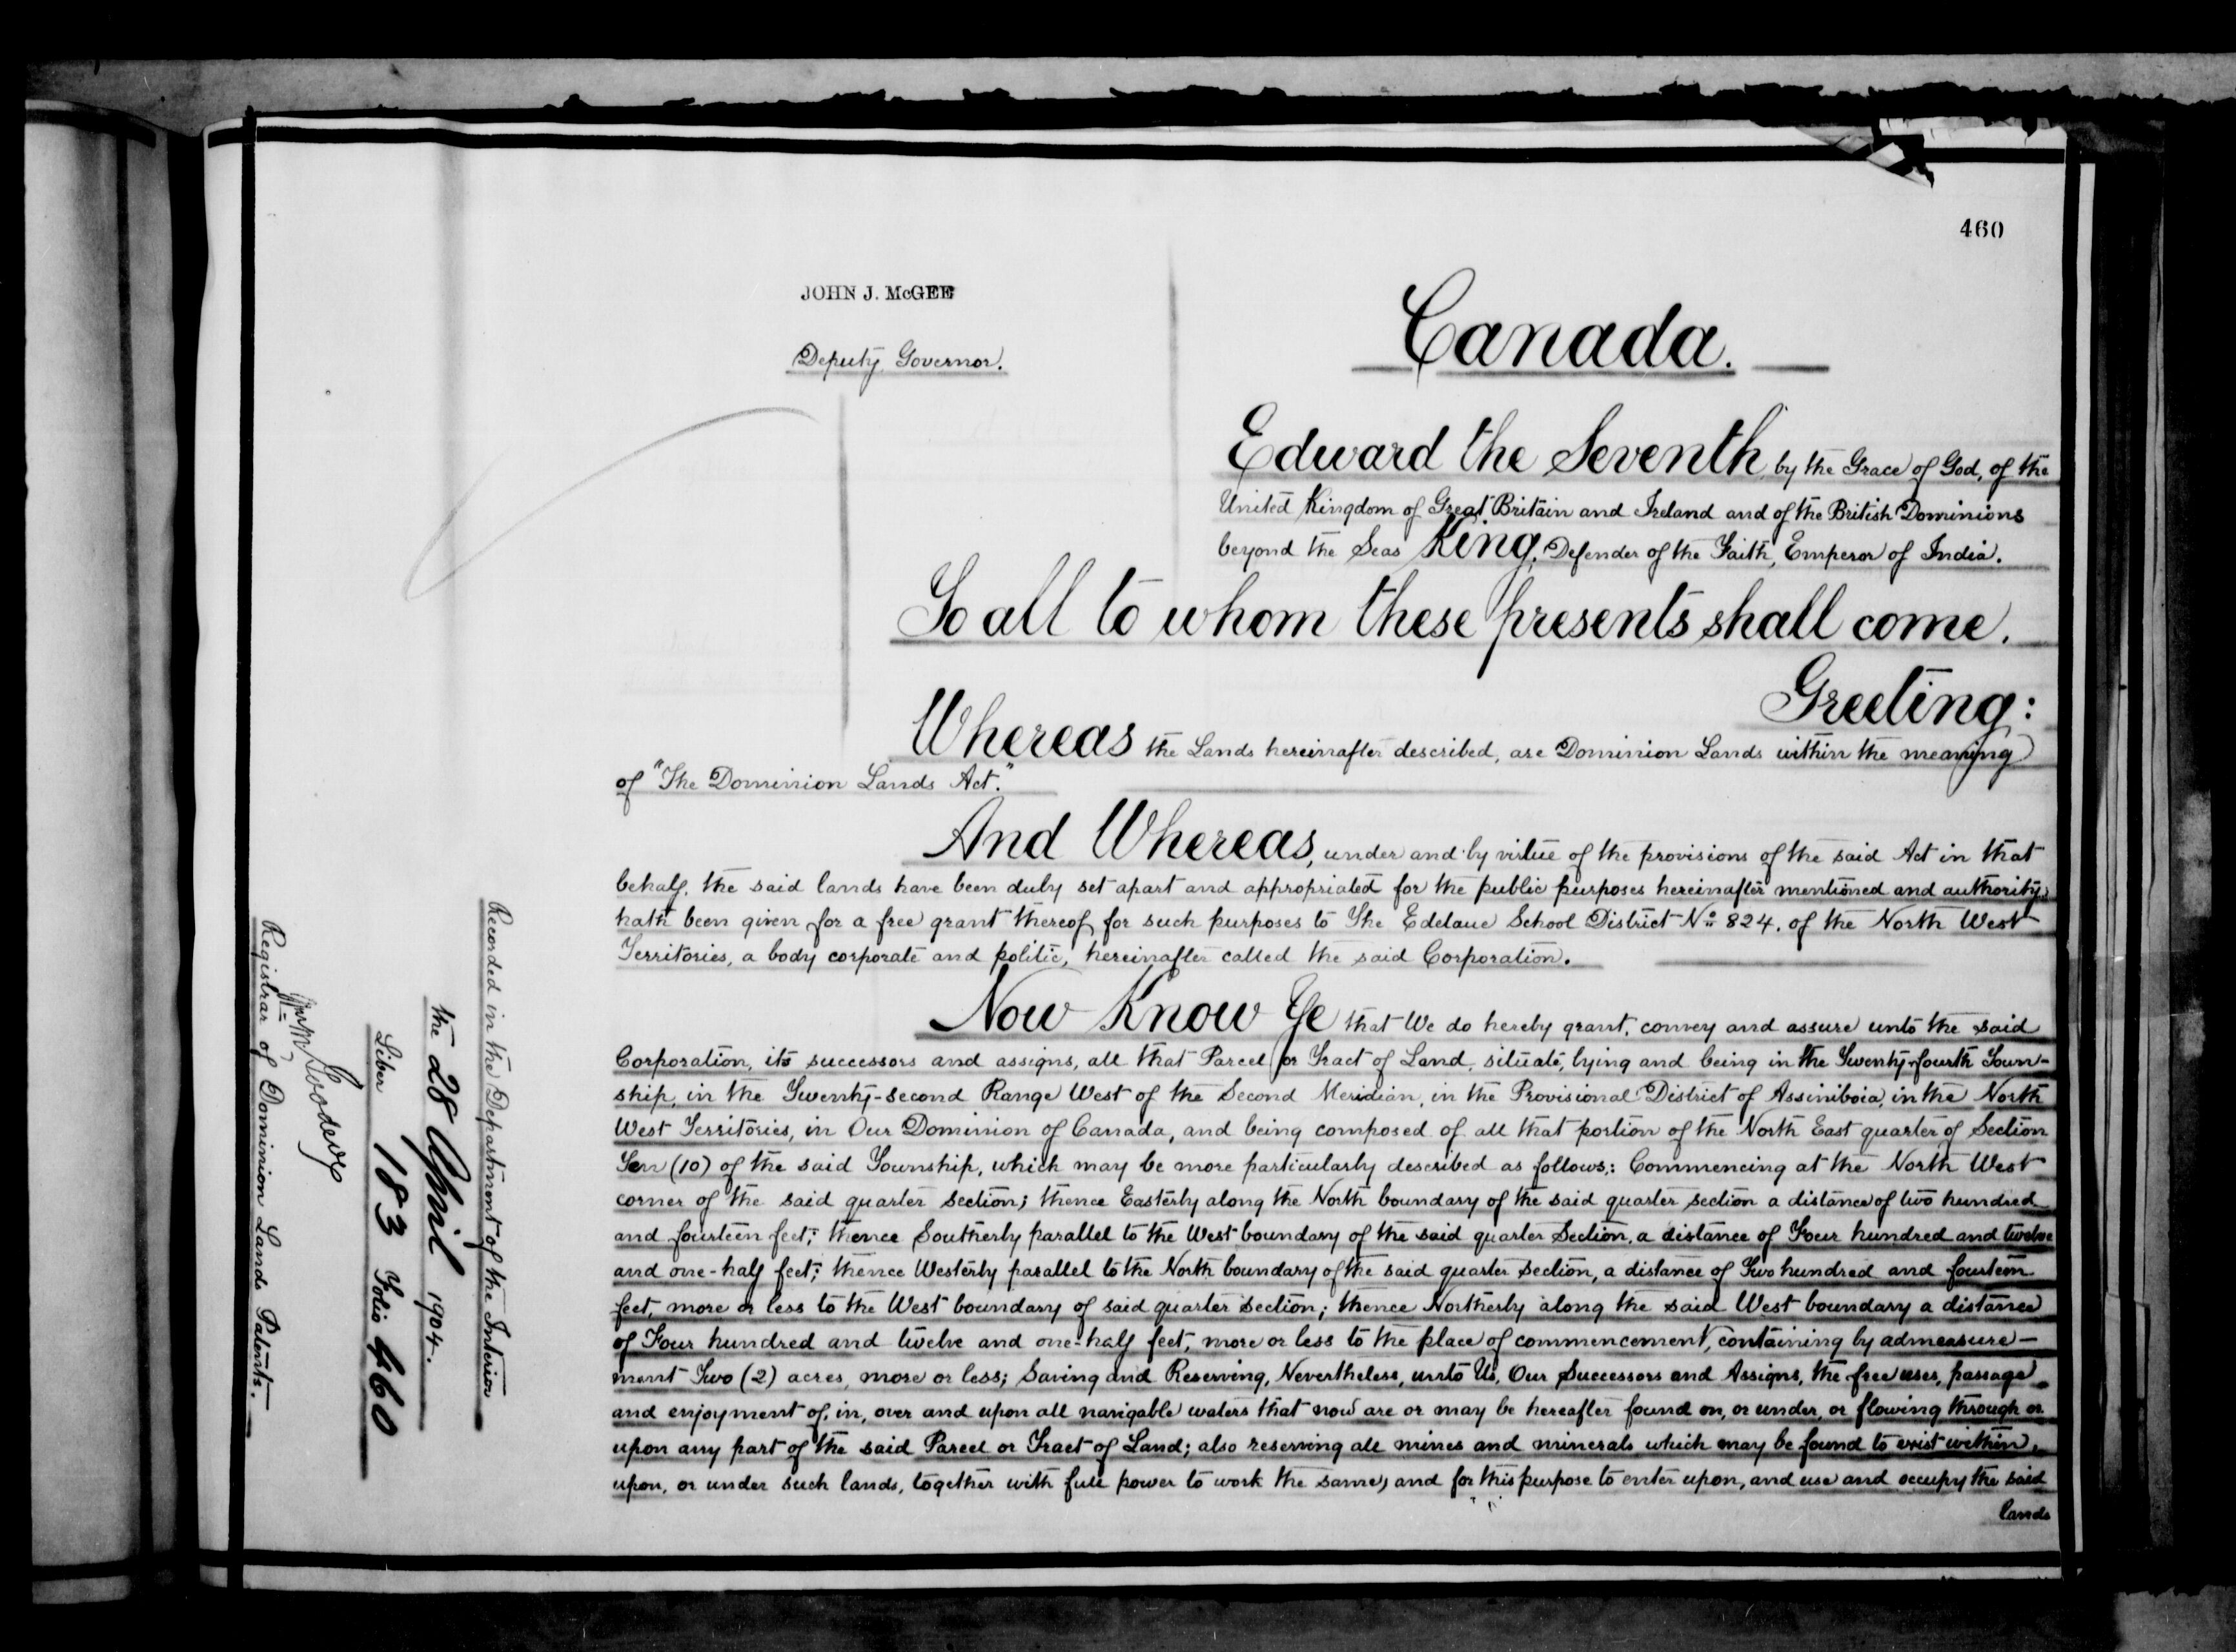 460
JOHN J. McGEE
Deputy Governor.
Canada.
Edward the Seventh, by the Grace of God, of the
United Kingdom of Great Britain and Ireland and of the British Dominions
beyond the Seas King, Defender of the Faith, Emperor of India.
To all to whom these presents shall come.
Greeting:
Whereas the Lands hereinafter described, are Dominion Lands within the meaning
of "The Dominion Lands Act."
And Whereas, under and by virtue of the provisions of the said Act in that
behalf, the said lands have been duly set apart and appropriated for the public purposes hereinafter mentioned and authority
hath been given for a free grant thereof for such purposes to The School District No. 824, of the North West
Territories, a body corporate and politic, hereinafter called the said Corporation.
Now Know Ye that We do hereby grant, convey and assure unto the said
Corporation, its successors and assigns, all that Parcel or Tract of Land, situate, lying and being in the Twenty-fourth Town-
ship, in the Twenty-second Range West of the Second Meridian, in the Provisional District of Assiniboia, in the North
West Territories, in Our Dominion of Canada, and being composed of all that portion of the North East quarter of Section
Ten (10) of the said Township, which may be more particularly described as follows: Commencing at the North West
corner of the said quarter section; thence Easterly along the North boundary of the said quarter section a distance of two hundred
and fourteen feet; thence Southerly parallel to the West boundary of the said quarter Section, a distance of Four hundred and twelve
and one-half feet; thence Westerly parallel to the North boundary of the said quarter section, a distance of Two hundred and fourteen
feet, more or less to the West boundary of said quarter section; thence Northerly along the said West boundary a distance
of Four hundred and twelve and one-half feet, more or less to the place of commencement, containing by admeasure-
ment Two (2) acres, more or less; Saving and Reserving, Nevertheless, unto Us, Our Successors and Assigns, the free uses, passage
and enjoyment of, in, over and upon all navigable waters that now are or may be hereafter found on, or under, or flowing through or
upon any part of the said Parcel or Tract of Land; also reserving all mines and minerals which may be found to exist within,
upon, or under such lands, together with full power to work the same, and for this purpose to enter upon, and use and occupy the said
lands
Recorded in the Department of the Interior
the 28 April 1904.
Liber 183 Folio 460
Registrar of Dominion Lands Patents.